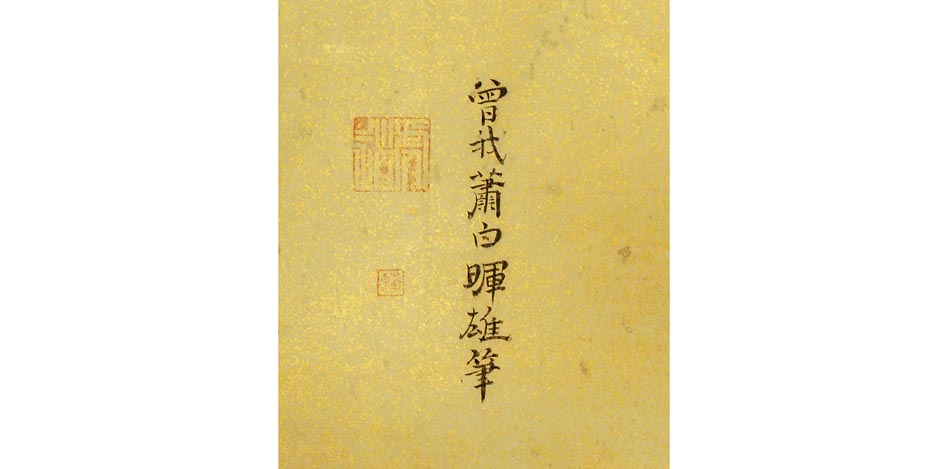 曾我蕭白暉雄筆